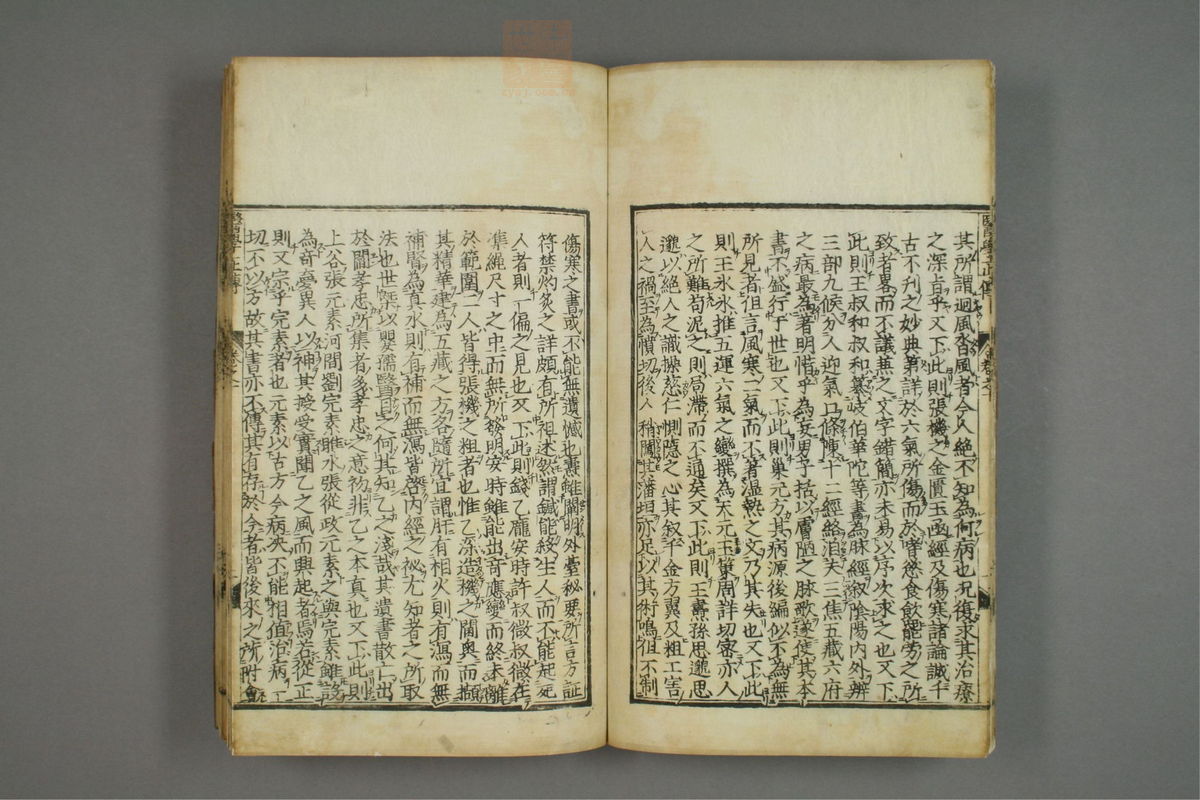 其所謂迥風沓風者今人絶不知為何病也况復求其治療
之深旨乎又下此則張機之金匱玉函經及傷寒諸論誠千
古不刊之妙典第詳於六氣所傷而於嗜慾食飲罷勞之所
致者畧而不議兼之文字錯簡亦未易以序次求之也又下
此則王叔和叔和纂岐伯華陀等書為脉經叙陰陽内外辨
三部九候分人迎氣口條陳十二經絡洎夫三焦五藏六府
之病最為著明惜乎為妄男子括以膚陋之脉歌遂使其本
書不盛行于世也又下此則巢元方其病源後編似不為無
所見者但言風寒二氣而不著濕熱之文乃其失也又下此
則王氷氷推五運六氣之變撰為天元玉策周詳切密亦人
之所難苟泥之則局滯而不通矣又下此則王燾孫思邈思
邈以絶人之識操慈仁惻隠之心其叙千金方翼及粗工害
人之禍至為憤切後人稍闖其藩垣亦足以其術鳴但不制
傷寒之書或不能無遺憾也燾雖闡明外臺秘要所言方証
符禁灼灸之詳頗有所祖述然謂鍼能殺生人而不能起死
人者則一偏之見也又下此則錢乙龐安時許叔微叔微在
準繩尺寸之中而無所發明安時雖能出奇應變而終未離
於範圍二人皆得張機之粗者也惟乙深造機之閫奥而擷
其精華建為五藏之方各隨所宜謂肝有相火則有瀉而無
補腎為真水則有補而無瀉皆啓内經之秘尤知者之所取
法也世槩以嬰孺醫目之何其知乙之淺哉其遺書散亡出
於閻孝忠所集者多孝忠之意初非乙之本真也又下此則
上谷張元素河間劉完素睢水張從政元素之與完素雖設
為奇夢異人以神其授受實聞乙之風而興起者焉若從正
則又宗乎完素者也元素以古方今病决不能相值治病一
切不以方故其書亦不傳其有存於今者皆後來之所附會